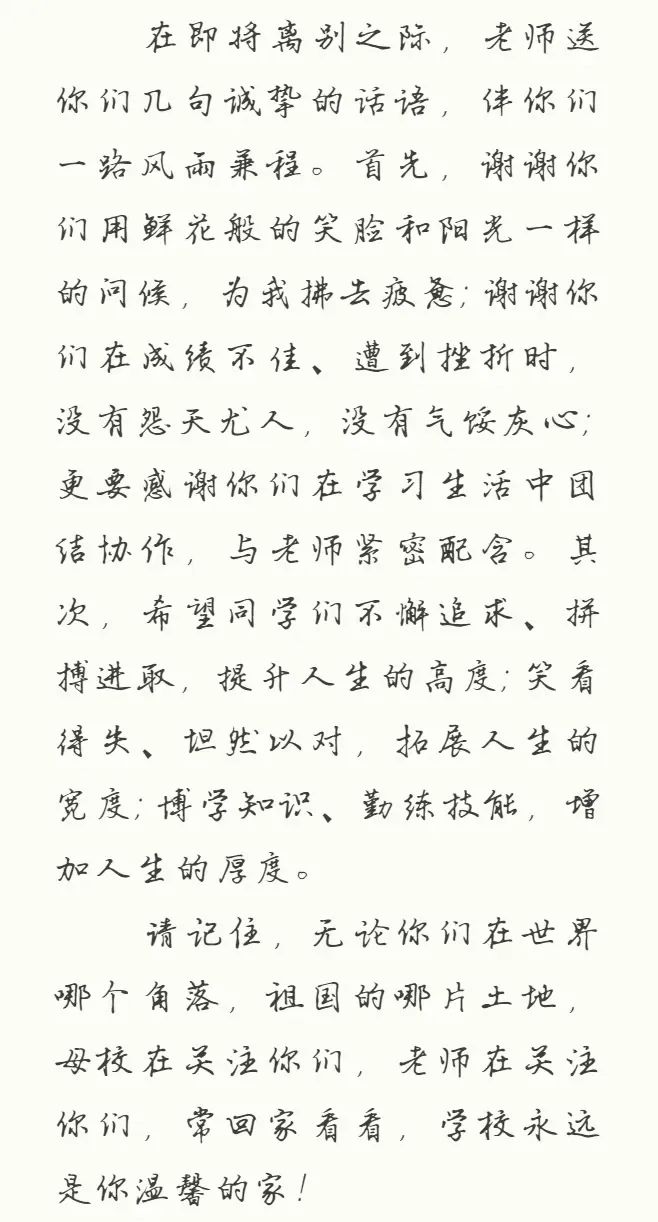 在即将离别之际，老师送
你们几句诚挚的话语，伴你们
一路风雨兼程。首先，谢谢你
们用鲜花般的笑脸和阳光一样
的问候，为我拂去疲惫；谢谢你
们在成绩不佳、遭到挫折时，
没有怨天尤人，没有气馁灰心；
更要感谢你们在学习生活中团
结协作，与老师紧密配合。其
次，希望同学们不懈追求、拼
搏进取，提升人生的高度；笑看
得失、坦然以对，拓展人生的
宽度；博学知识、勤练技能，增
加人生的厚度。
请记住，无论你们在世界
哪个角落，祖国的哪片土地，
母校在关注你们，老师在关注
你们，常回家看看，学校永远
是你温馨的家！